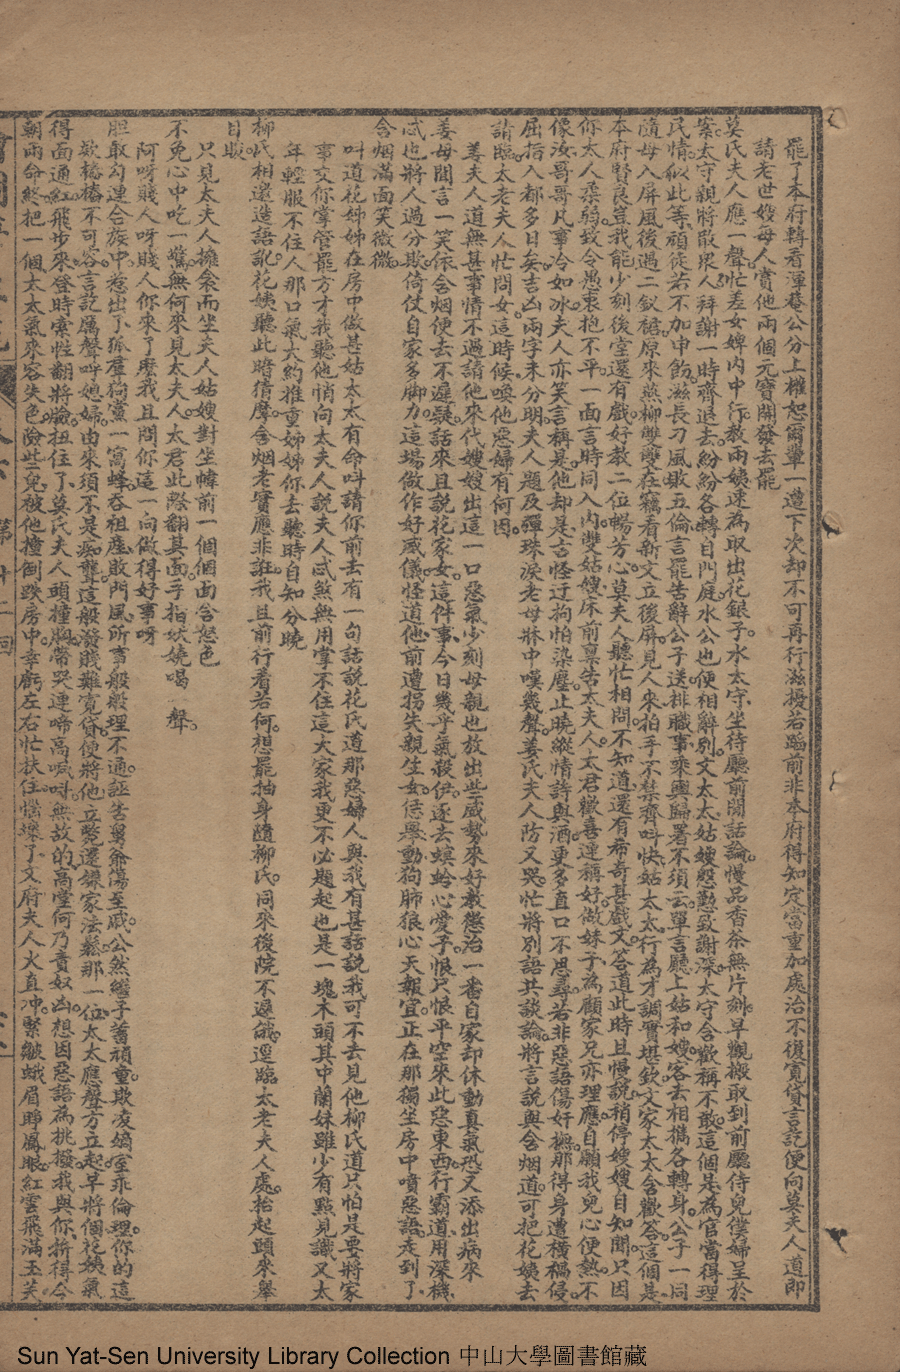 罷了本府轉看渾菴公分上權恕爾輩一遭下次却不可再行滋擾若蹈前非本府得知定當重加處治不復寬貸言訖便向莫夫人道即
請老世嫂每人賞他兩個元寶開發去罷
莫氏夫人應一聲忙差女婢內中行教兩姨速為取出花銀子水太守坐待廳前閒話論慢品香茶無片刻早觀搬取到前廳侍兒僕婦呈於
案太守親將散眾人拜謝一時齊退去紛紛各轉自門庭水公也便相辭別文太太姑嫂慇懃致謝深太守含歡稱不敢這個是為官當得理
民情似此等頑徒若不加申飭滋長刀風敗五倫言罷告辭公子送排職事乘輿歸署不須云單言廳上姑和嫂客去相攜各轉身公子一同
隨母入屏風後遇二釵裙原來燕柳雙雙在竊看新文立後屏見人來拍手不禁齊叫快姑太太行為才調實堪欽文家太太含歡答這個是
本府賢良豈我能少刻後堂還有戲好教二位暢芳心莫夫人聽忙相問不知道還有希奇甚戲文答道此時且慢說稍停嫂嫂自知聞只因
你太人柔弱致令愚衷抱不平一面言時同入內雙姑嫂床前稟告太夫人太君歡喜連稱好做妹子為顧家兄亦理應自願我兒心便熱不
像汝哥哥凡事冷如冰夫人亦笑言稱是他却是古怪迂拘怕染塵止曉縱情詩與酒更多直口不思尋若非惡語傷奸橅那得身遭橫禍侵
屈指入都多日矣吉凶兩字未分明夫人題及彈珠淚老母牀中嘆幾聲姜氏夫人防又哭忙將別語共談論將言說與含烟道可把花姨去
請臨太老夫人忙問女這時候喚他惡婦有何因
姜夫人道無甚事情不過請他來代嫂嫂出這一口惡氣少刻母親也放出些威勢來好教懲治一番自家却休動真氣恐又添出病來
姜母聞言一笑依含烟便去不遲疑話來且說花家女這件事今日幾乎氣殺伊逐去螟蛉心愛子恨只恨平空來此惡東西行霸道用深機
忒也將人過分欺倚仗自家多脚力這場做作好威儀怪道他前遭拐失親生女恁舉動狗肺狼心天報宜正在那獨坐房中噴惡語走到了
含烟滿面笑微微
叫道花姊姊在房中做甚姑太太有命叫請你前去有一句話說花氏道那惡婦人與我有甚話說我可不去見他柳氏道只怕是要將家
事交你掌管罷方才我聽他悄向太夫人說夫人忒煞無用掌不住這大家我更不必題起也是一塊木頭其中蘭妹雖少有點見識又太
年輕服不住人那口氣大約推重姊姊你去聽時自知分曉
柳氏相還造語訛花姨聽此暗猜摩含烟老實應非誑我且前行看若何想罷抽身隨柳氏同來後院不遲俄逕臨太老夫人處抬起頭來舉
目睃
只見太夫人擁衾而坐夫人姑嫂對坐幃前一個個面含怒色
不免心中吃一驚無何來見太夫人太君此際翻其面手指妖嬈喝一聲
阿呀賤人呀賤人你來了麼我且問你這一向做得好事呀
胆敢勾連合族中惹出了狐羣狗黨一窩蜂吞祖產敗門風所事般般理不通証害舅爺傷至戚公然繼子蓄頑童欺凌嫡室乖倫理你的這
欵樁樁不可容言訖厲聲呼媳婦由來須不是痴聾這般潑賤難寬貸便將他立斃還嫌家法鬆那一位太太應聲方立起早將個花姨氣
得面通紅飛步來登時索性翻將臉扭住了莫氏夫人頭撞胸帶哭連啼高喊叫無故的高堂何乃責奴凶想因惡語為挑撥我與你拚得今
朝兩命終把一個太太氣來容失色險些兒被他撞倒跌房中幸虧左右忙扶住惱壞了文府夫人火直冲緊皺蛾眉睜鳳眼紅雲飛滿玉芙
第廿二回
Sun Yat-Sen University Library Collection 中山大學圖書館藏